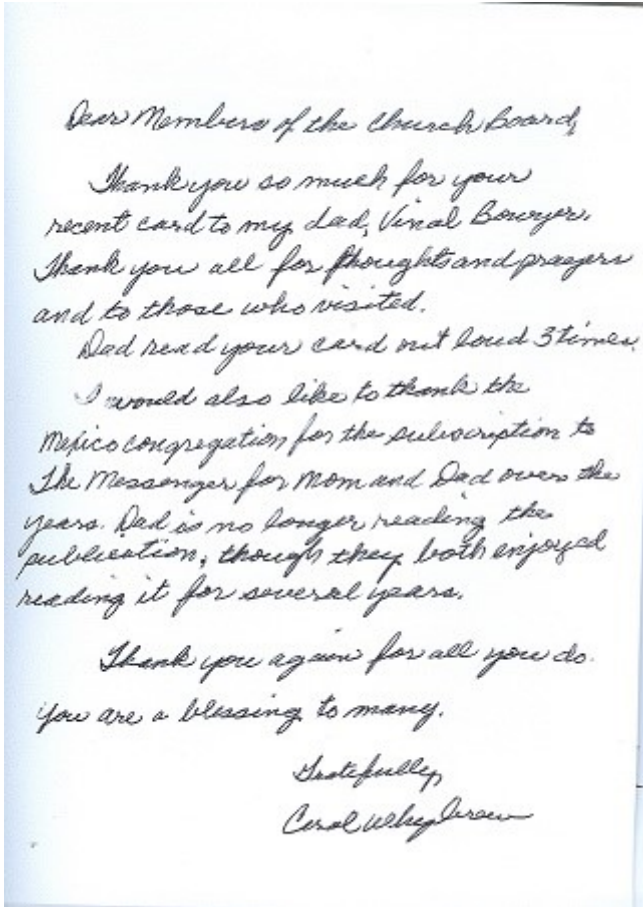 Dear Members of the Church Board,
Thank you so much for your
recent card to my dad, Vinal Bowyer.
Thank you all for thoughts and prayers
and to those who visited.
Dad read your card out loud 3 times.
I would also like to thank the
Mexico congregation for the subscription to
The Messenger for Mom and Dad over the
years. Dad is no longer reading the
publication, though they both enjoyed
reading it for several years.
Thank you again for all you do.
You are a blessing to many.
Gratefully,
Carol Whybrew